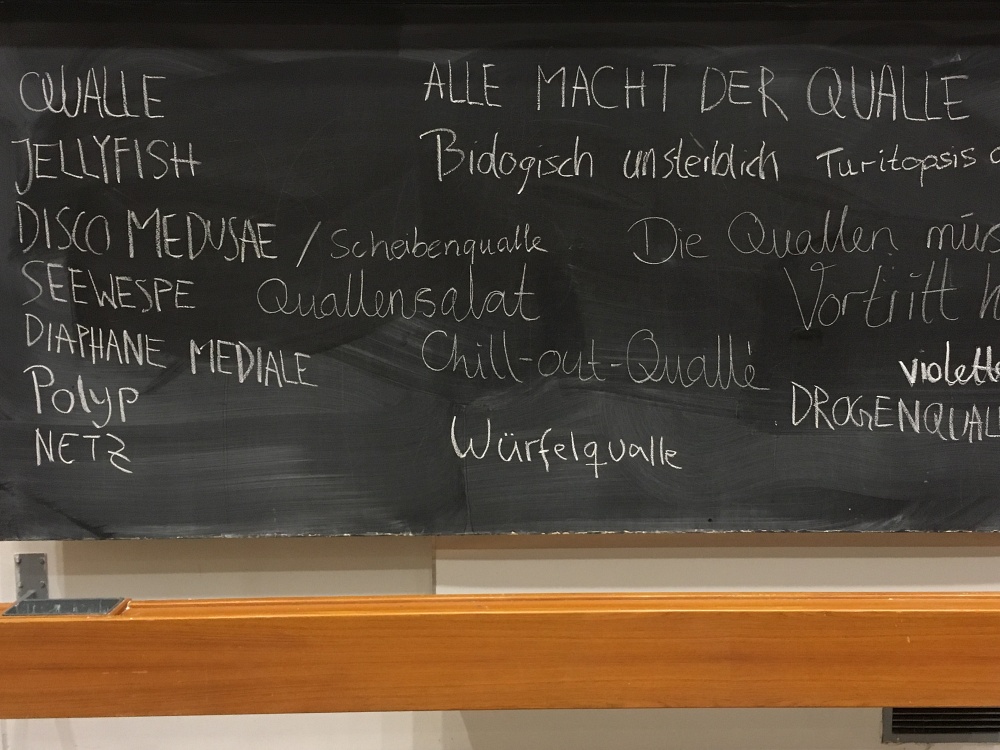 QUALLE
JELLYFISH
DISCO MEDUSAE / Scheibenqualle
SEEWESPE Quallensalat
DIAPHANE MEDIALE
Polyp
NETZ
ALLE MACHT DER QUALLE
Biologisch unsterblich Turitopsis
Die Quallen müs
Vortritt h
Chill-out-Qualle
violette
DROGENQUAL
Würfelqualle